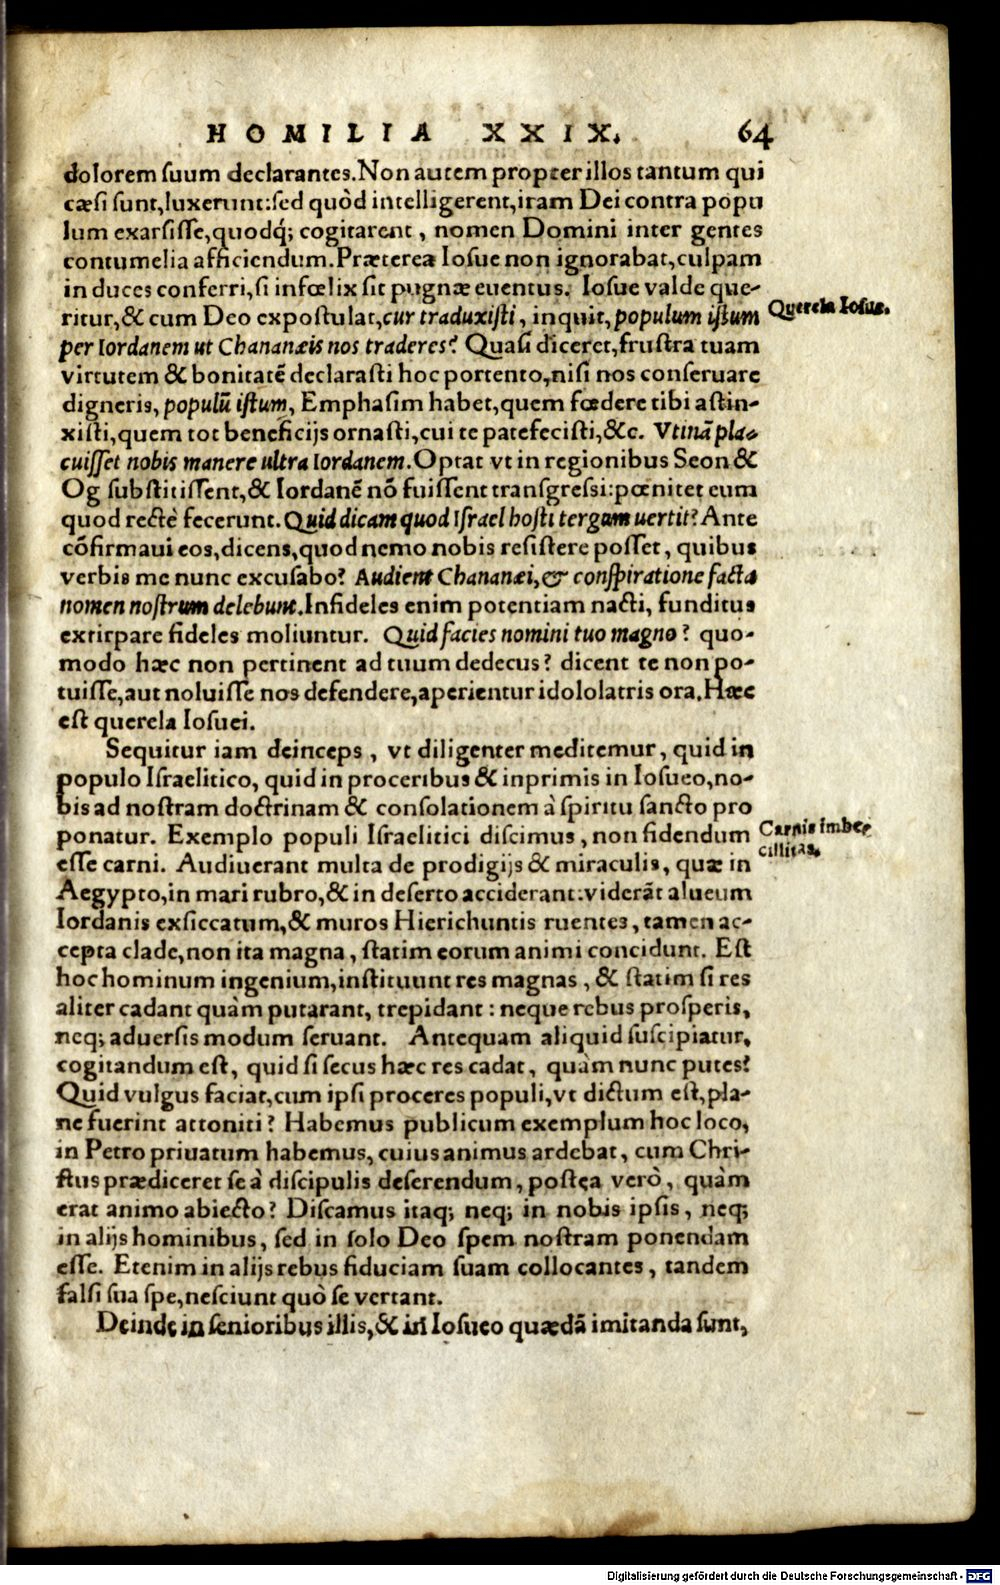 HOMILIA XXIX. 64
dolorem suum declarantes. Non autem propter illos tantum qui
cæsi sunt, luxerunt: sed quòd intelligerent, iram Dei contra popu
lum exarsisse, quodq́; cogitarent, nomen Domini inter gentes
contumelia afficiendum. Præterea Iosue non ignorabat, culpam
in duces conferri, si infœlix sit pugnæ euentus. Iosue valde que-
ritur, & cum Deo expostulat, cur traduxisti, inquit, populum istum
Querela Iosue.
per Iordanem ut Chananæis nos traderes? Quasi diceret, frustra tuam
virtutem & bonitatē declarasti hoc portento, nisi nos conseruare
digneris, populū istum, Emphasim habet, quem fœdere tibi astin-
xisti, quem tot beneficijs ornasti, cui te patefecisti, &c. Vtinā pla-
cuisset nobis manere ultra Iordanem. Optat vt in regionibus Seon &
Og substitissent, & Iordanē nō fuissent transgressi: pœnitet eum
quod rectè fecerunt. Quid dicam quod Israel hosti tergum uertit? Ante
cōfirmaui eos, dicens, quod nemo nobis resistere posset, quibus
verbis me nunc excusabo? Audient Chananæi, & conspiratione facta
nomen nostrum delebunt. Infideles enim potentiam nacti, funditus
extirpare fideles moliuntur. Quid facies nomini tuo magno? quo-
modo hæc non pertinent ad tuum dedecus? dicent te non po-
tuisse, aut noluisse nos defendere, aperientur idololatris ora. Hæc
est querela Iosuei.
Sequitur iam deinceps, vt diligenter meditemur, quid in
populo Israelitico, quid in proceribus & inprimis in Iosueo, no-
bis ad nostram doctrinam & consolationem à spiritu sancto pro
ponatur. Exemplo populi Israelitici discimus, non fidendum
Carnis imbe
cillitas.
esse carni. Audiuerant multa de prodigijs & miraculis, quæ in
Aegypto, in mari rubro, & in deserto acciderant: viderāt alueum
Iordanis exsiccatum, & muros Hierichuntis ruentes, tamen ac-
cepta clade, non ita magna, statim eorum animi concidunt. Est
hoc hominum ingenium, instituunt res magnas, & statim si res
aliter cadant quàm putarant, trepidant: neque rebus prosperis,
neq; aduersis modum seruant. Antequam aliquid suscipiatur,
cogitandum est, quid si secus hæc res cadat, quàm nunc putes?
Quid vulgus faciat, cum ipsi proceres populi, vt dictum est, pla-
ne fuerint attoniti? Habemus publicum exemplum hoc loco,
in Petro priuatum habemus, cuius animus ardebat, cum Chri-
stus prædiceret se à discipulis deserendum, postea verò, quàm
erat animo abiecto? Discamus itaq; neq; in nobis ipsis, neq;
in alijs hominibus, sed in solo Deo spem nostram ponendam
esse. Etenim in alijs rebus fiduciam suam collocantes, tandem
falsi sua spe, nesciunt quò se vertant.
Deinde in senioribus illis, & in Iosueo quædā imitanda sunt,
Digitalisierung gefördert durch die Deutsche Forschungsgemeinschaft - DFG